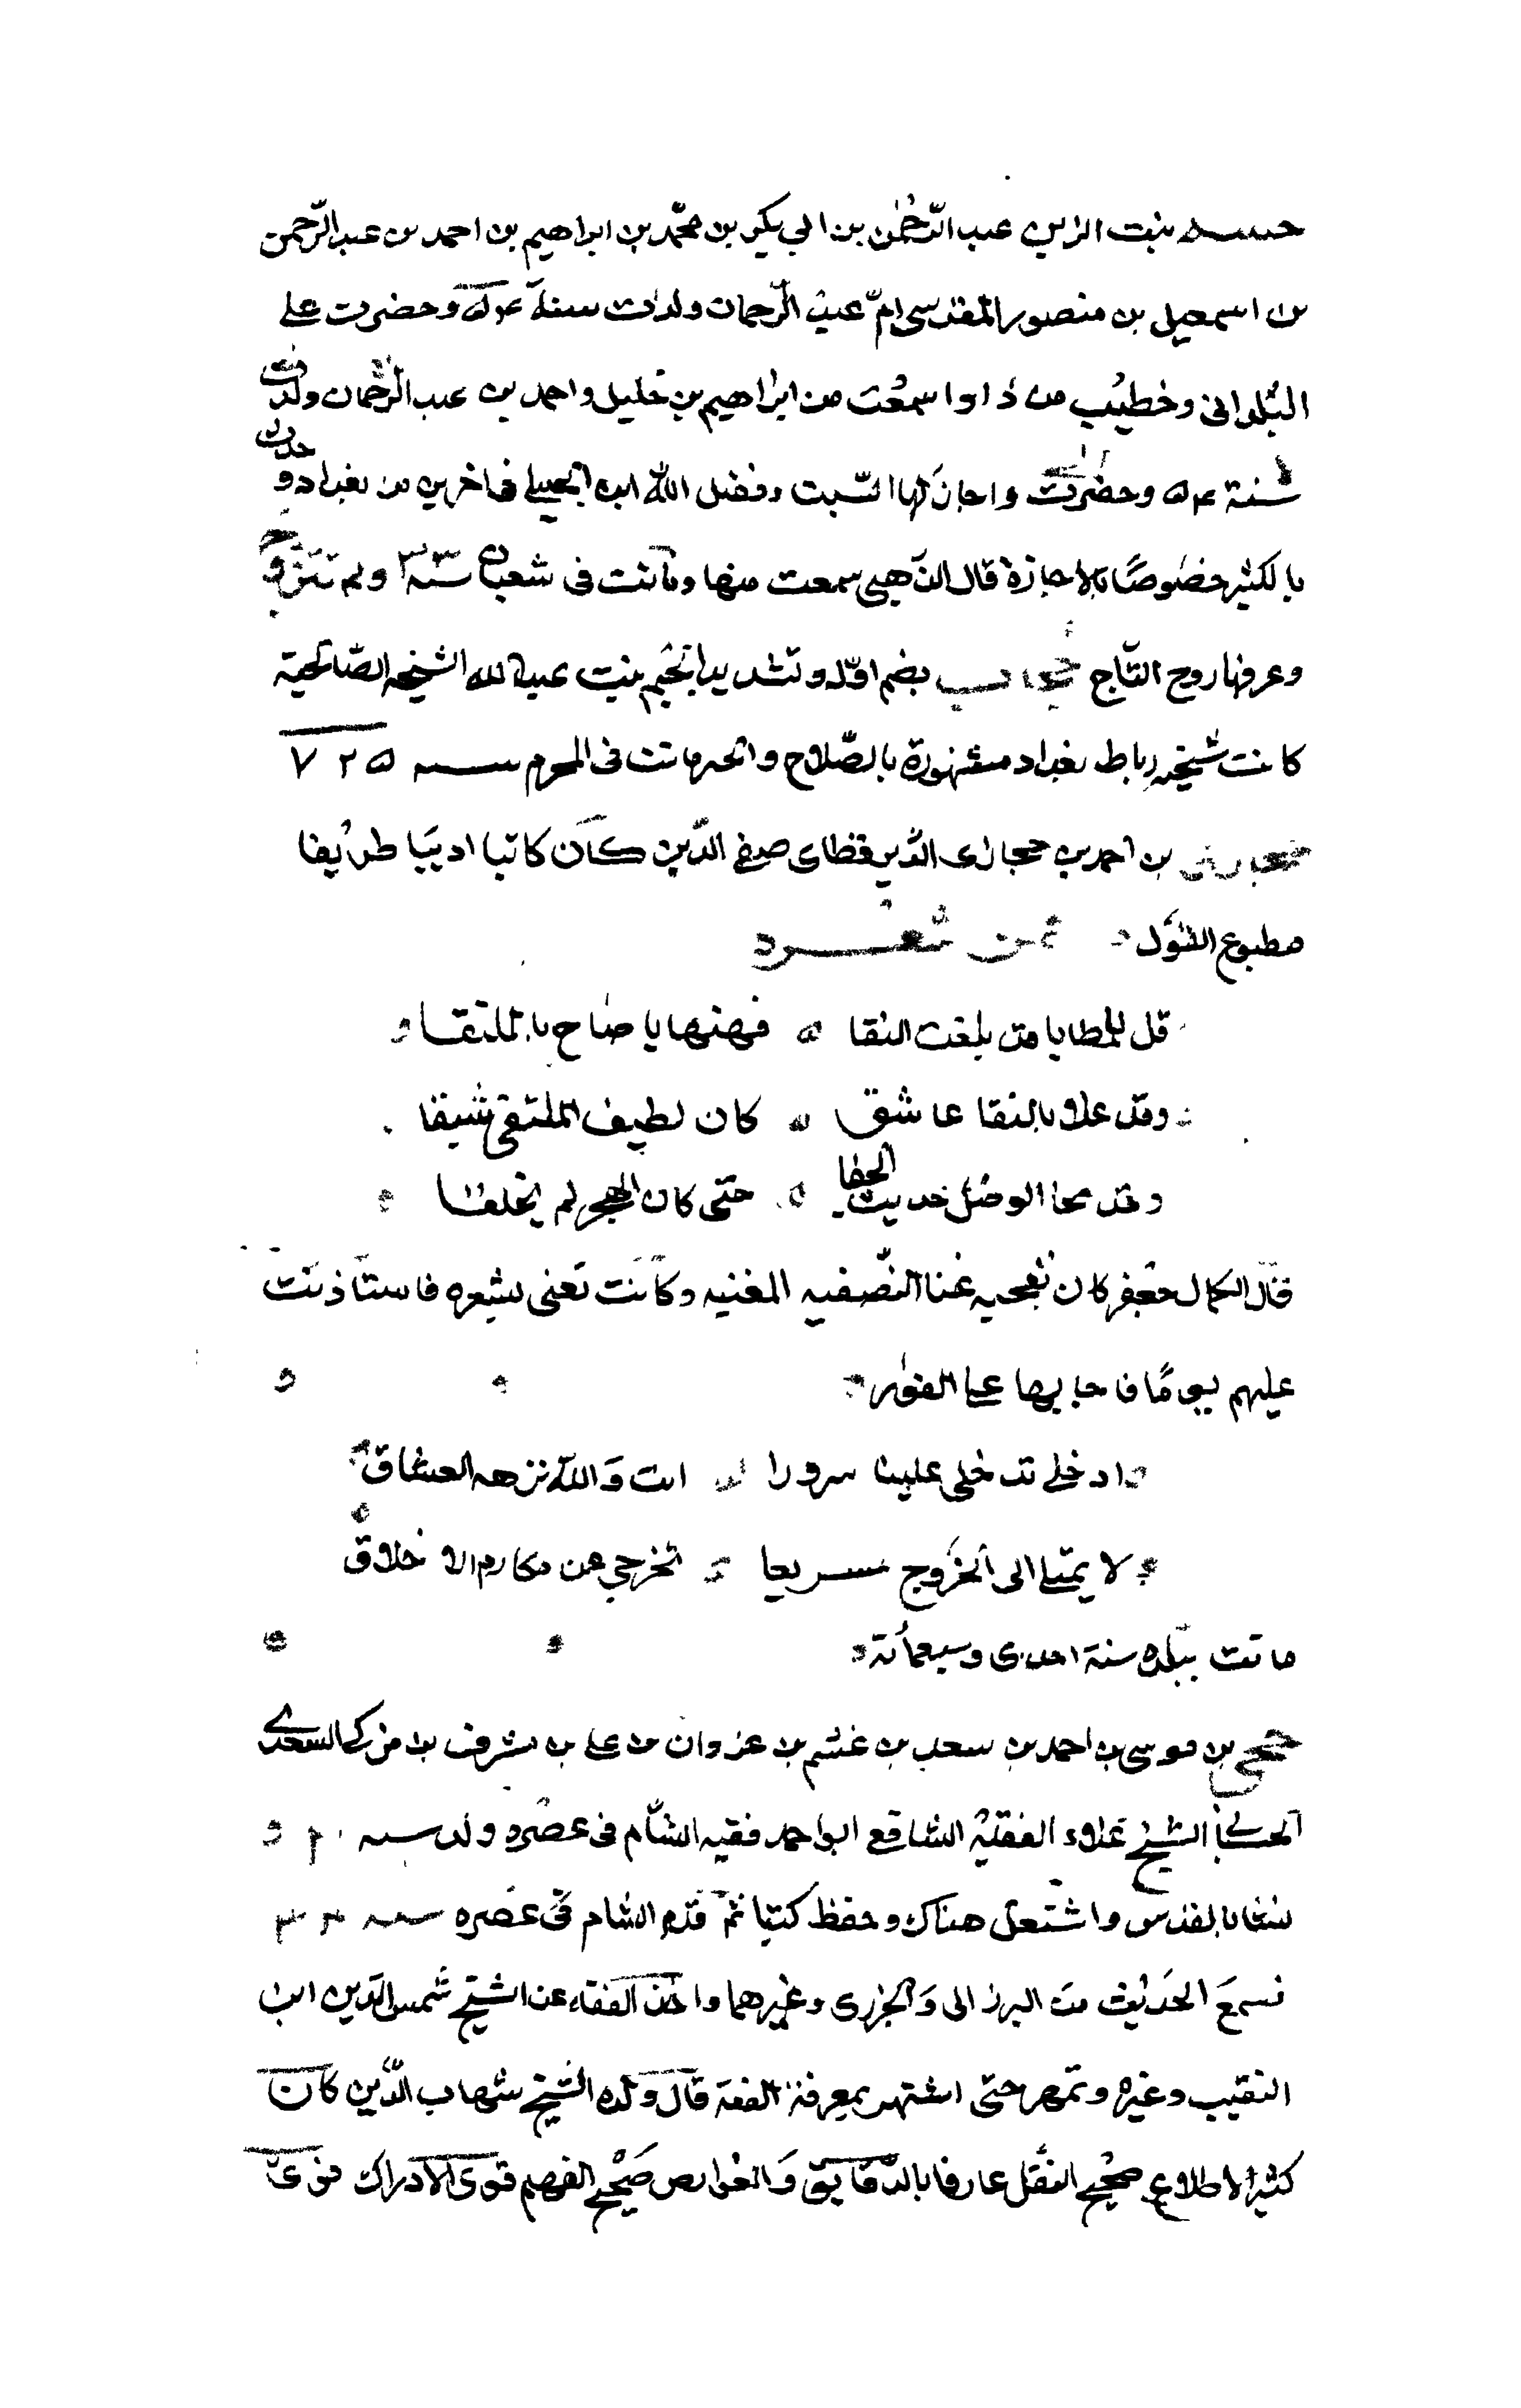 حبيبه بنت الزين عبد الرّحمٰن بن ابي بكر بن محمّد بن ابراهيم بن احمد بن عبد الرّحمن
بن اسمعيل بن منصور المقدسى امّ عبد الرّحمان ولدت سنة وحضرت على
البلدانى وخطيب مردا وا سمعت من ابراهيم بن خليل واحمد بن عبد الرّحمان ولدت
سنة ٥٤ وحضرت واجاز لها السّبت وفضل الله ابن الجيلى فى اخرين من بغداد و حدثت
بالكثير خصوصًا بالاجازة قال الذّهبى سمعت منها وماتت فى شعبان سنة ٧٣٣ ولم تتزوج
وعرفها روح التّاج بضم اوّله وتشديد الجيم بنت عبد الله الشيخه الصّالحية
كانت شيخه رباط بغداد مشهورة بالصّلاح والخير ماتت فى المحرم سنه ٧٢٥
بن احمد بن حجازى الدّين قظاى صفى الدّين كان كاتبا اديبا ظريفا
مطبوع القول فمن شعره
قل للمطايا قد بلغت النقا فهنها يا صاح بالملتقا
وقد علا بالنقا عاشق كان لطيف الملتقى شيقا
وقد محا الوصل حديث الجفا حتى كان الهجر لم يخلقا
قال الكمال جعفر كان تعجبه غنا النّصفيه المغنيه وكانت تغنى بشعره فاستاذنت
عليهم يومًا فاجابها على الفور
ادخلى تدخلى علينا سرورا انت وَالله نزهه العشاق
لا تميلى الى الخروج سريعا تخرجي عن مكارم الاخلاق
ماتت ببلده سنة احدى وسبعمأتة
حجى بن موسى بن احمد بن سعد بن غشم بن غزوان بن على بن مشرف بن مزكى السعدى
الحسبانى الشيخ علاء الفقيه الشافعى ابو احمد فقيه الشّام فى عصره ولد سنه
نشا بالقدس واشتغل هناك وحفظ كتبا ثمّ قدم الشام فى عصره سنه ٣٤
فسمعَ الحَديث من البرزالى وَالجزرى وغيرهما واخذ الفقه عن الشيخ شمس الدّين ابن
النقيب وغيره وتمهر حتى اشتهر بمعرفة الفقه قال ولده الشيخ شهاب الدّين كان
كثير الاطلاع صحيح النقل عارفا بالدّقايق وَالغوامص صَحيح الفهم قوى الادراك